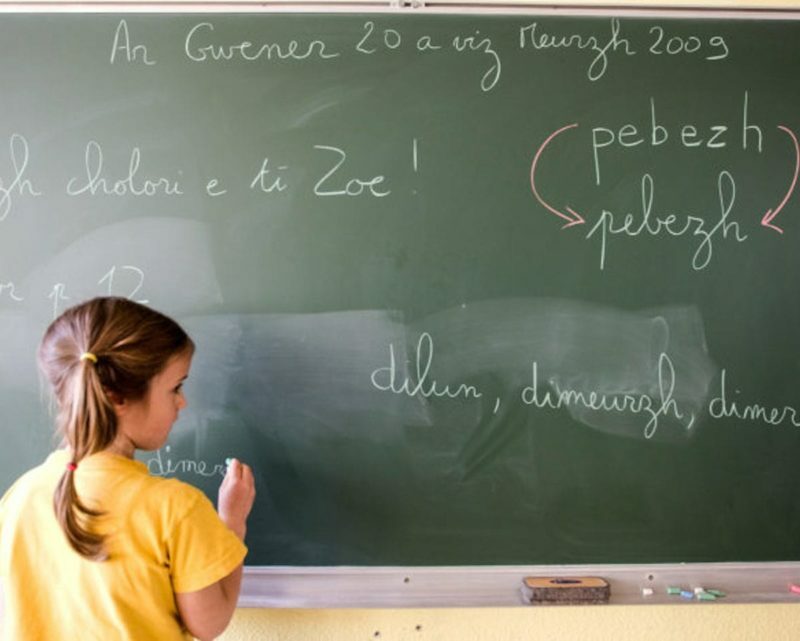 Ar Gwener 20 a viz Meurzh 2009
pebezh
zh cholori e ti Zoe !
pebezh
r p 12
dilun, dimeurzh, dimer
dimer